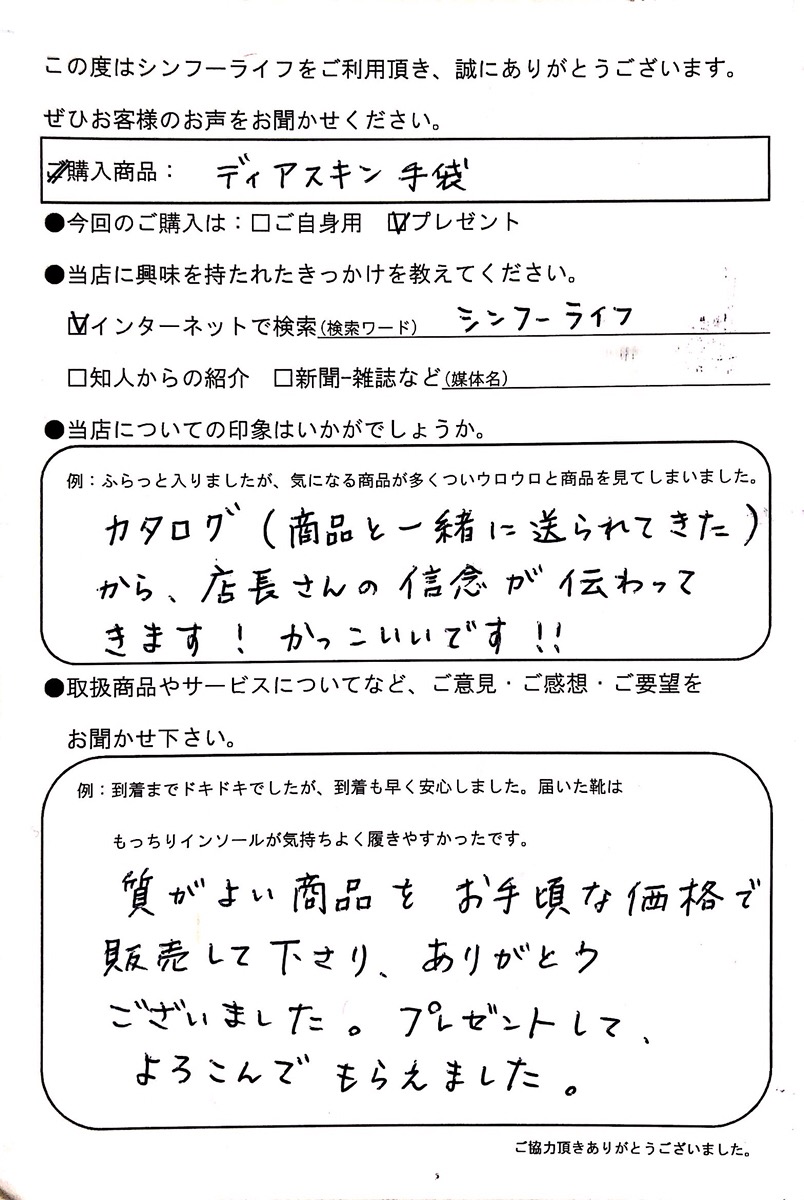 この度はシンフーライフをご利用頂き、誠にありがとうございます。
ぜひお客様のお声をお聞かせください。
ご購入商品： ディアスキン 手袋
●今回のご購入は：□ご自身用 ☑プレゼント
●当店に興味を持たれたきっかけを教えてください。
☑インターネットで検索(検索ワード) シンフーライフ
□知人からの紹介 □新聞-雑誌など(媒体名)
●当店についての印象はいかがでしょうか。
例：ふらっと入りましたが、気になる商品が多くついウロウロと商品を見てしまいました。
カタログ(商品と一緒に送られてきた)
から、店長さんの信念が伝わって
きます！かっこいいです!!
●取扱商品やサービスについてなど、ご意見・ご感想・ご要望を
お聞かせ下さい。
例：到着までドキドキでしたが、到着も早く安心しました。届いた靴は
もっちりインソールが気持ちよく履きやすかったです。
質がよい商品をお手頃な価格で
販売して下さり、ありがとう
ございました。プレゼントして、
よろこんでもらえました。
ご協力頂きありがとうございました。